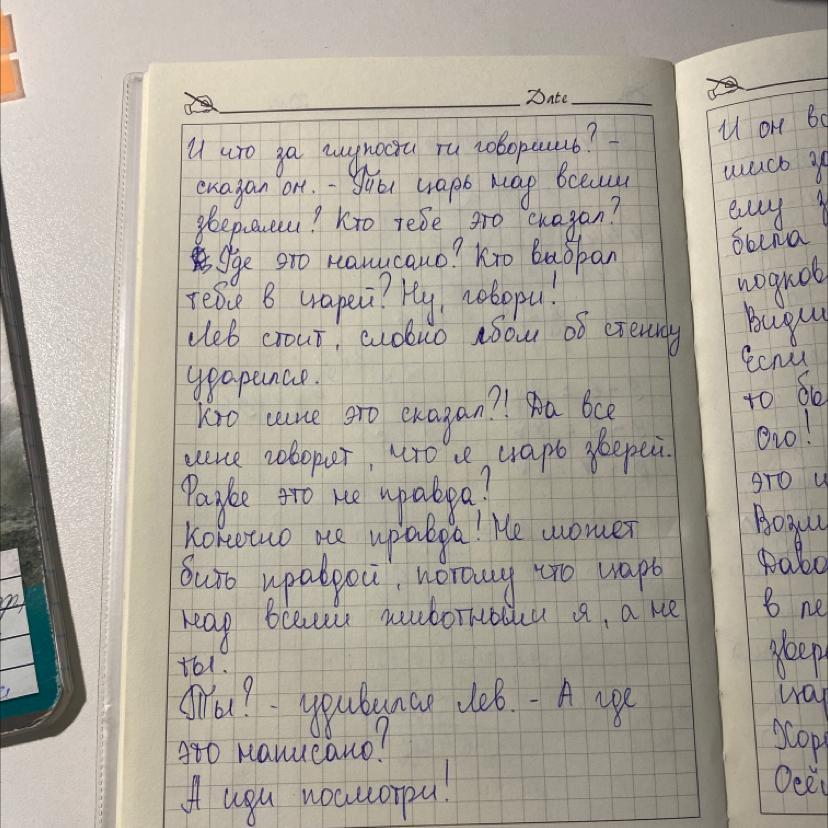 Date
И что за глупости ти говоришь? -
сказал он. - Ты царь над всеми
зверями? Кто тебе это сказал?
Где это написано? Кто выбрал
тебя в царей? Ну, говори!
Лев стоит, словно лбом об стенку
ударился.
Кто мне это сказал?! Да все
мне говорят, что я царь зверей.
Разве это не правда?
Конечно не правда! Не может
бить правдой, потому что царь
над всеми животными я, а не
ты.
Ты? - удивился Лев. - А где
это написано?
А иди посмотри!
И он
ему
была
Если
то
Ого!
это
в